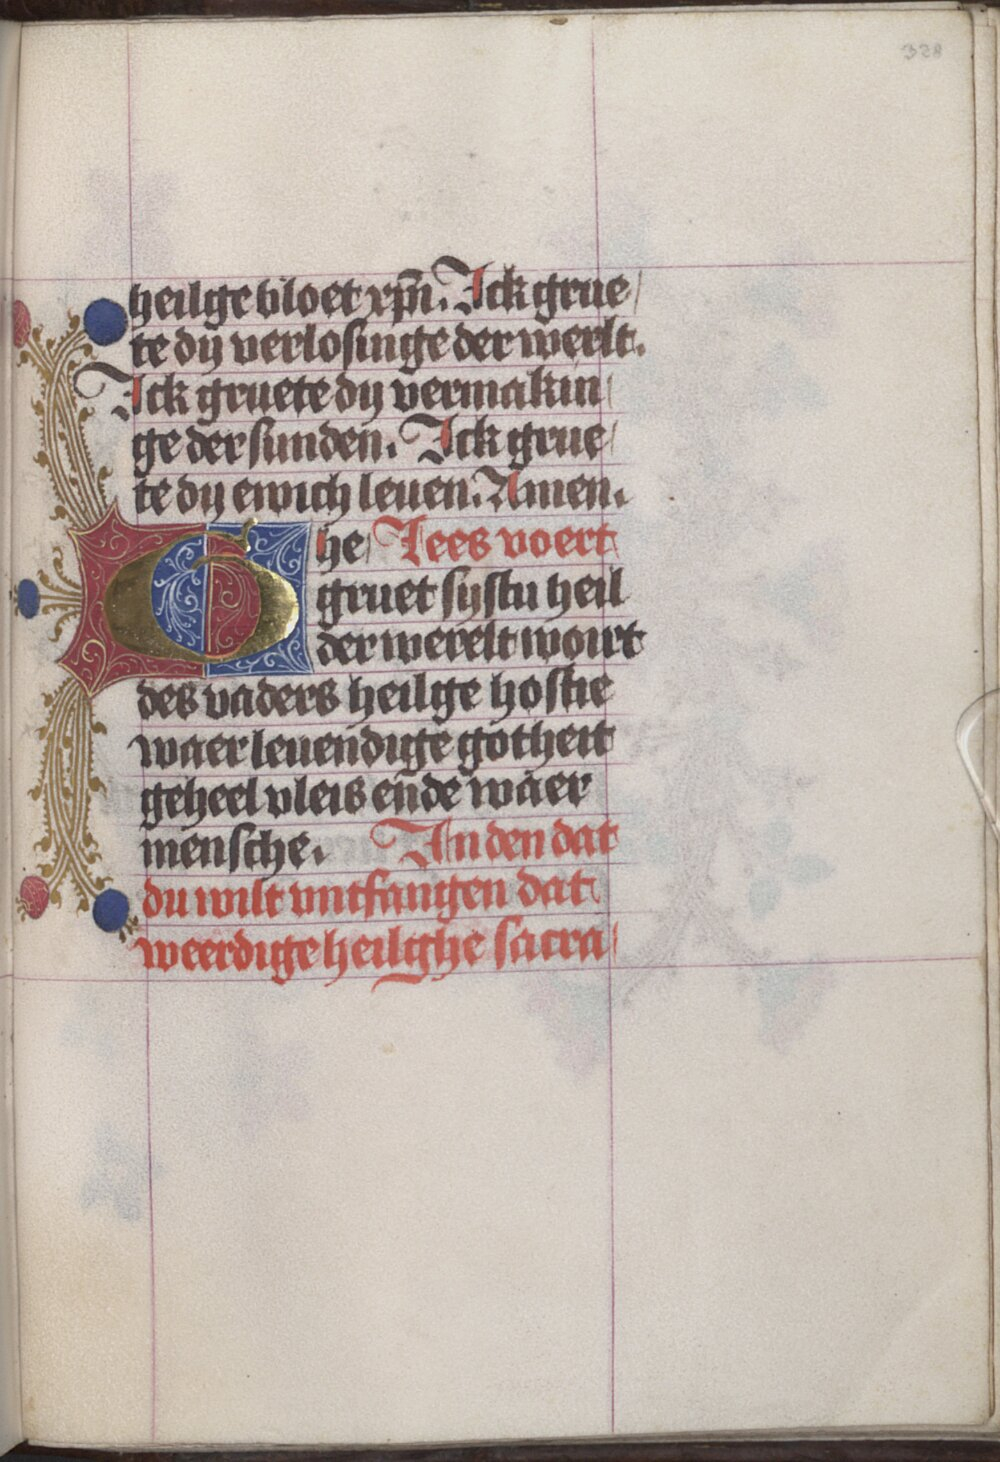 328
heilge bloet xp̄i. Ick grue
te dy verlosinge der werlt.
Ick gruete dy vermakin
ge der sunden. Ick grue
te dy ewich leuen. Amen.
Ghe Lees voert
gruet systu heil
der werelt woirt
des vaders heilge hostie
waer leuendige gotheit
geheel vleis en̄de waer
mensche. An den dat
du wilt untfangen dat
weerdige heilighe sacra